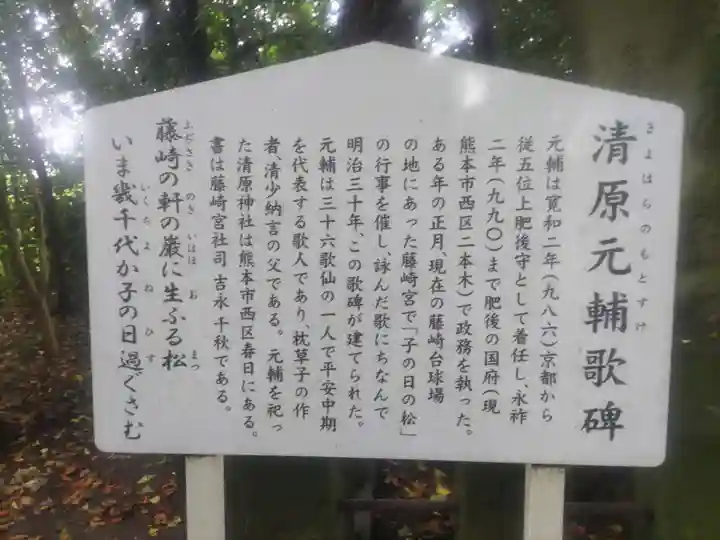 清原元輔歌碑
きよはらのもとすけ
元輔は寛和二年(九八六)京都から
従五位上肥後守として着任し、永祚
二年(九九〇)まで肥後の国府(現
熊本市西区二本木)で政務を執った。
ある年の正月、現在の藤崎台球場
の地にあった藤崎宮で「子の日の松」
の行事を催し、詠んだ歌にちなんで
明治三十年、この歌碑が建てられた。
元輔は三十六歌仙の一人で平安中期
を代表する歌人であり、枕草子の作
者、清少納言の父である。 元輔を祀っ
た清原神社は熊本市西区春日にある。
書は藤崎宮社司 吉永千秋である。
藤崎の軒の巌に生ふる松
ふぢさき のき いはほ お まつ
いま幾千代か子の日過ぐさむ
いくちよ ねひす